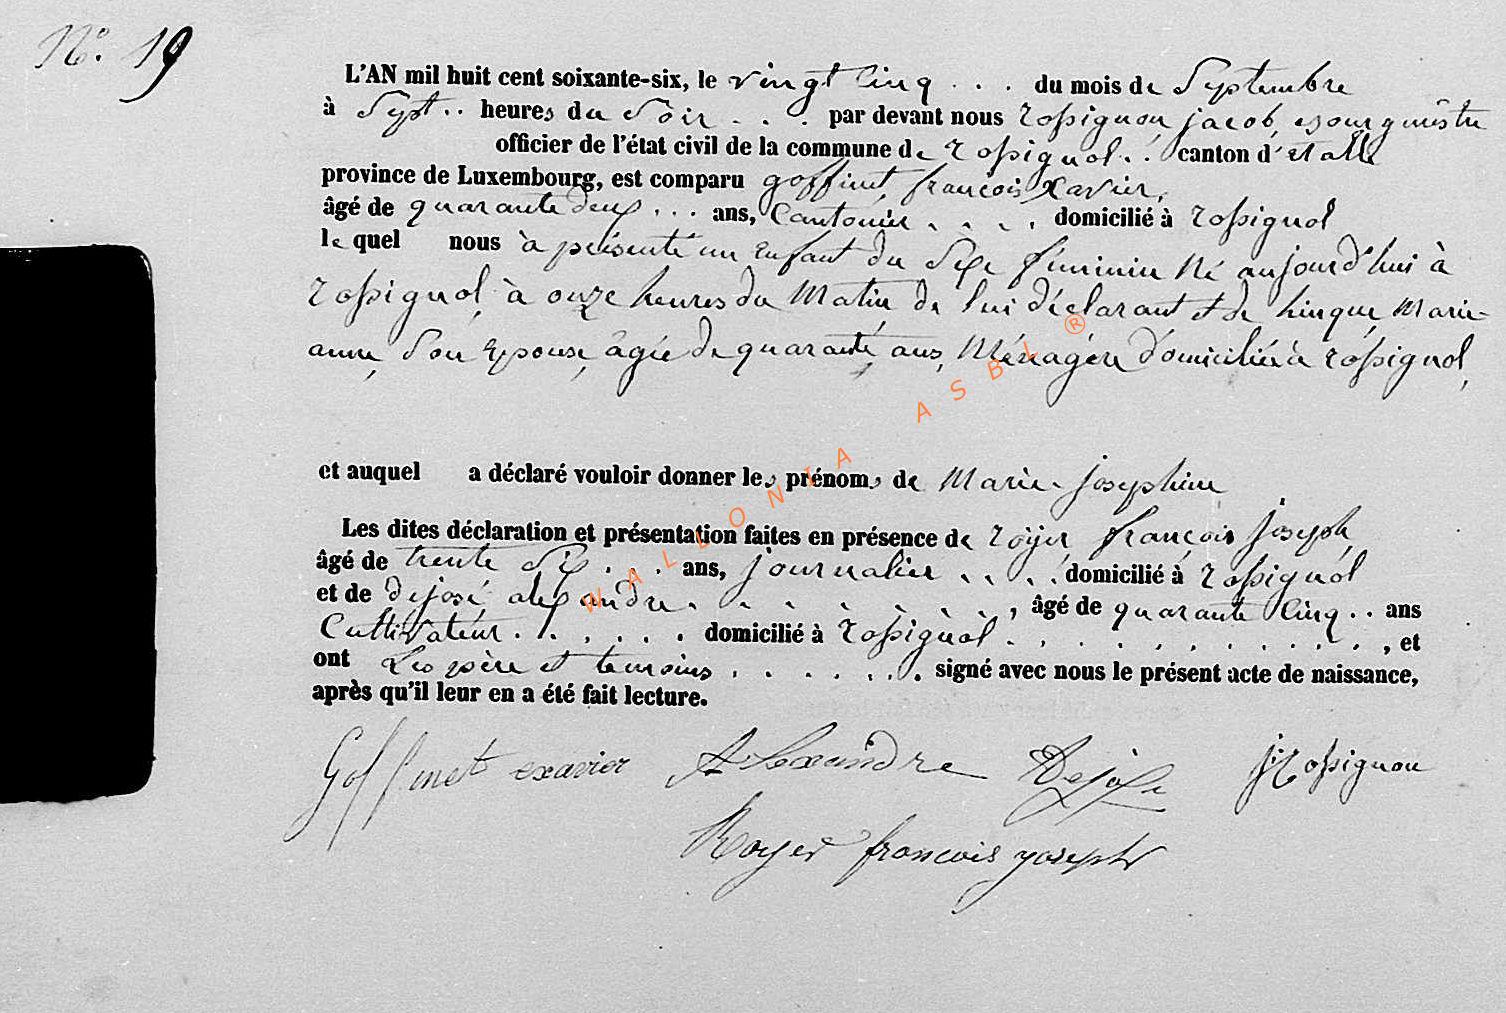 N° 19
L'AN mil huit cent soixante-six, le vingt cinq . . . du mois de Septembre
à Sept . . heures du Soir . . . par devant nous rossignon, jacob, bourguestre
officier de l'état civil de la commune de rossignol . . canton d'étalle
province de Luxembourg, est comparu goffinet, françois xavier,
âgé de quarante deux . . . ans, Cantonier . . . . domicilié à rossignol
le quel nous à présenté un Enfant du Sexe féminin Né aujourd'hui à
rossignol, à onze heures du Matin, de lui déclarant et de hinque, Marie-
anne, Son Epouse, âgée de quarante, ans, Ménagère domiciliée à rossignol,
et auquel a déclaré vouloir donner les prénoms de Marie-josephine
Les dites déclaration et présentation faites en présence de royer françois joseph,
âgé de trente Six . . . ans, journalier . . . . domicilié à rossignol
et de dejosé, alexandre . . . . . . . . , âgé de quarante Cinq . . ans
Cultivateur . . . . . . domicilié à rossignol . . . . . . . . . . . , et
ont Les père et temoins . . . . . . . signé avec nous le présent acte de naissance,
après qu'il leur en a été fait lecture.
Goffinet exavier Alexandre Dejosé j: rossignon
Royer francois yoseph
WALLONIA ASBL ®